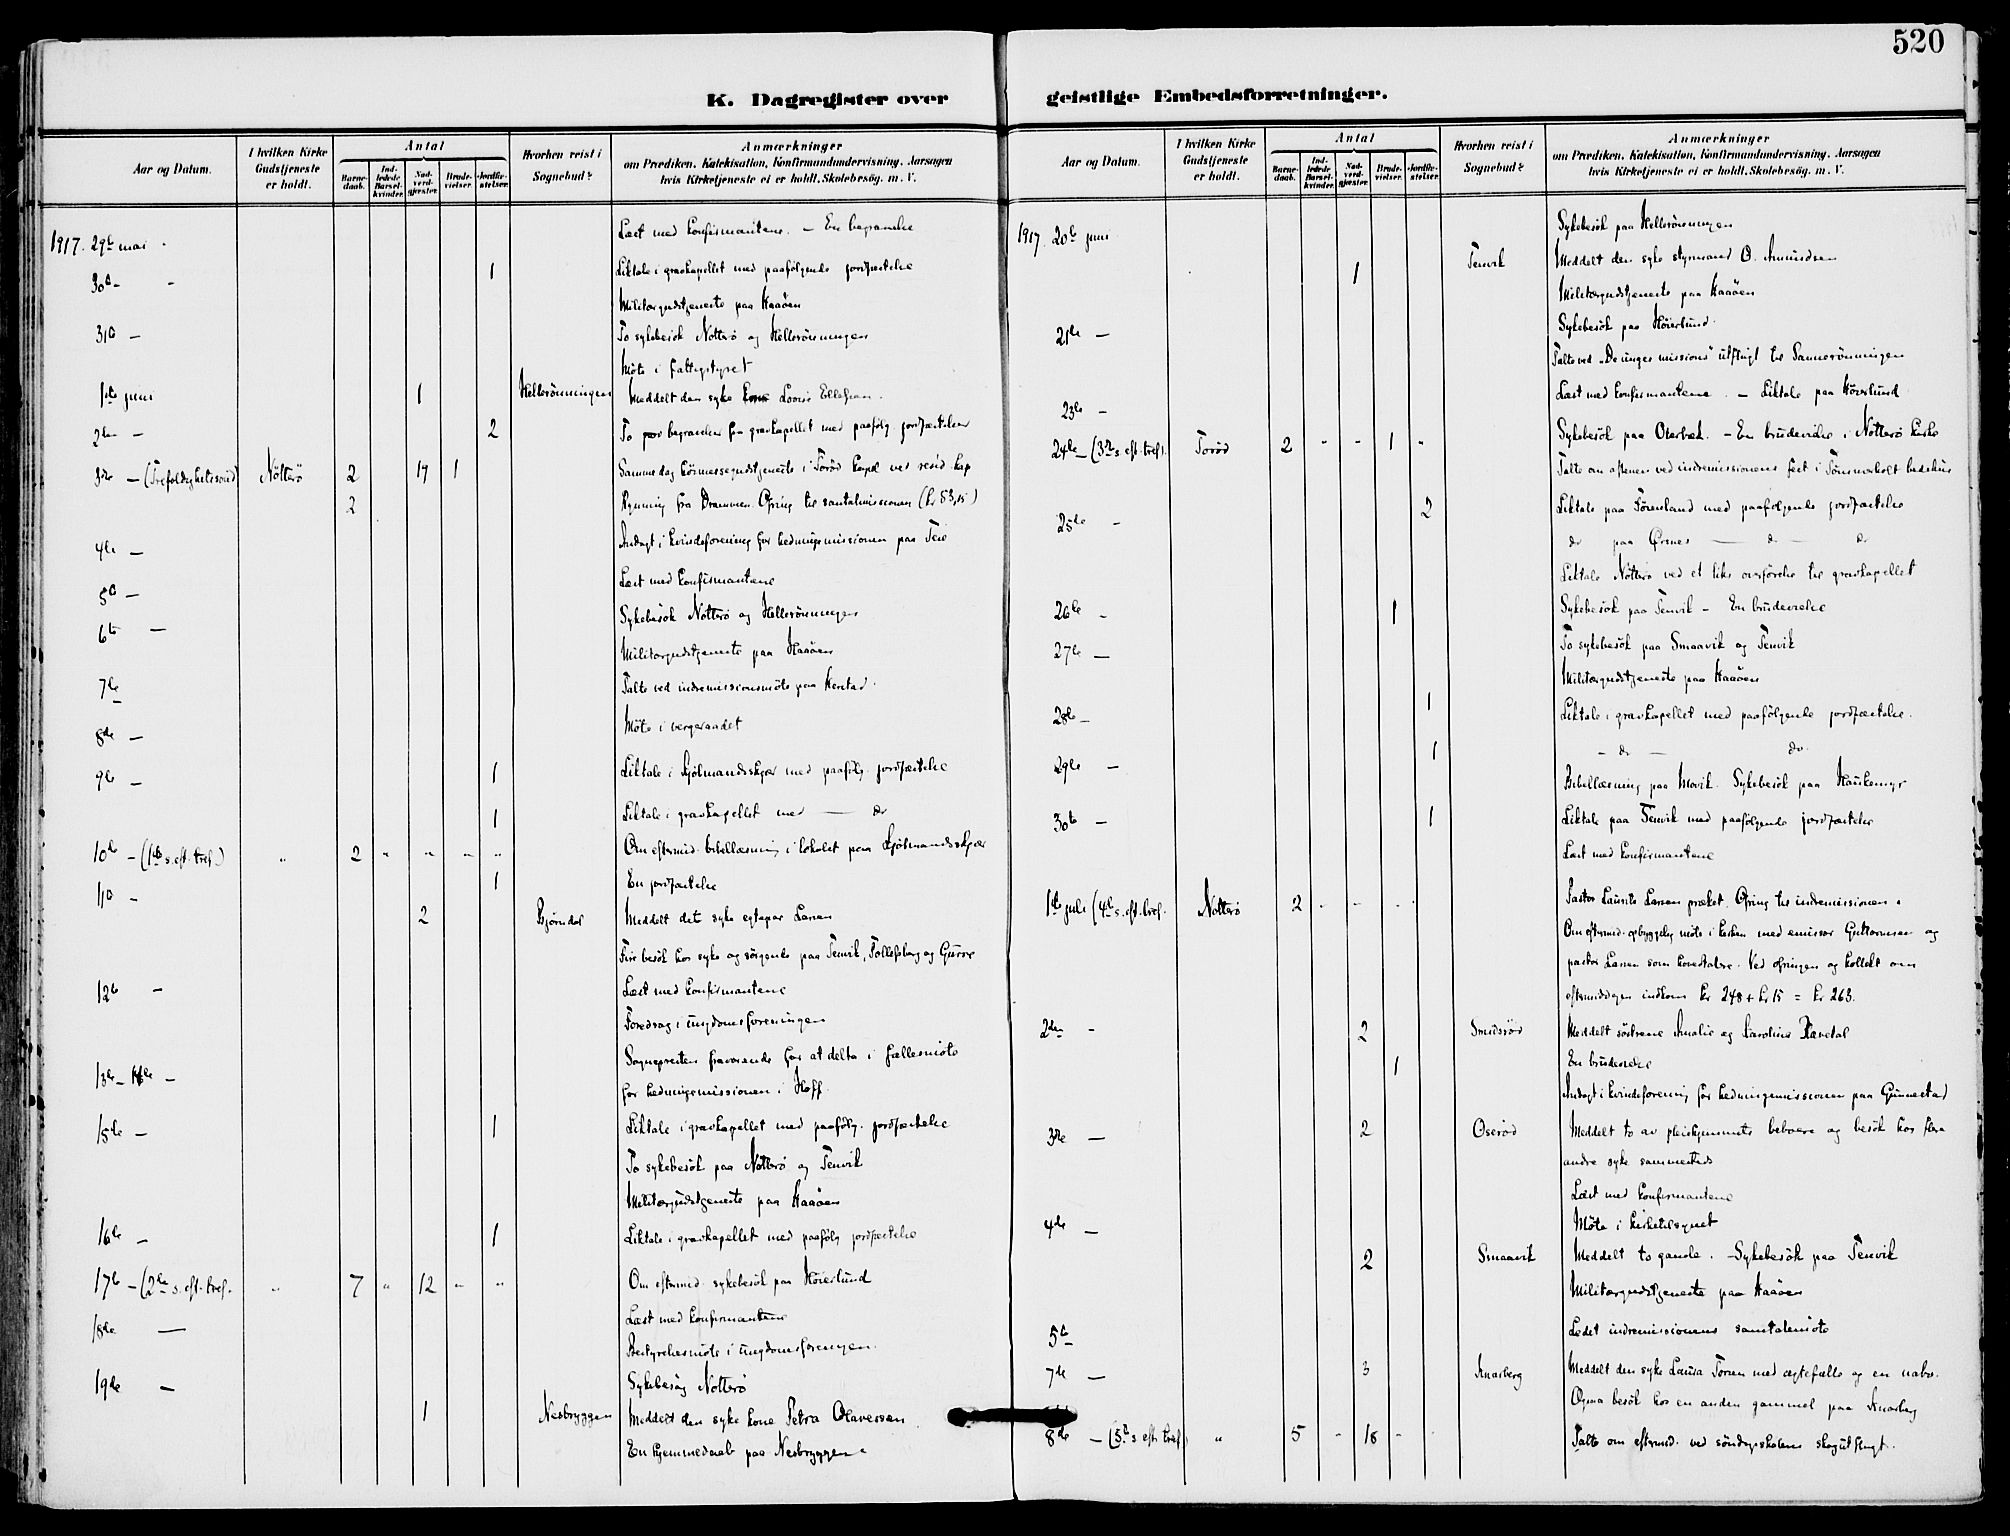 520
K. Dagregister over
Aar og Datum.
I hvilken Kirke Gudstjeneste er holdt.
Antal
Barne-daab.
Ind-ledede Barsel-kvinder.
Nad-verd-gjester.
Brude-vielser.
Jordfæ-stelser.
Hvorhen reist i Sognebud?
Anmærkninger
om Prædiken, Katekisation, Konfirmandundervisning, Aarsagen
hvis Kirketjeneste ei er holdt, Skolebesøg, m. V.
1917. 29de mai Læst med konfirmantene. – En begravelse
30te – 1 Liktale i gravkapellet med paafölgende jordfæstelse
Militærgudstjeneste paa Haaöen
31te – To sykebesök Nötterö og Hellerönningen
Möte i fattigstyret
1ste juni 1 Hellerönningen Meddelt den syke Lovise Ellefsen.
2den – 2 To begravelser fra gravkapellet med paafölg. jordfæstelser
3die – (Trefoldighetssönd) Nötterö 2 19 1 Samme dag höimessegudstjeneste i Torød kapel ved resid. kap
2 Rynning fra Drammen. Ofring til santalmissionen (kr 53,15)
4de – Andagt i kvindeforening for hedningemissionen paa Teie
5te – Læst med konfirmantene
6te – Sykebesök Nötterö og Hellerönningen
Militærgudstjeneste paa Haaöen
7de – Talte ved indremissionsmöte paa Herstad.
8de – Möte i vergeraadet
9de – 1 Liktale i Fjölmandsskjær med paafölg. jordfæstelse
1 Liktale i gravkapellet med — do
10de – (1ste s. eft. tref.) " 2 " " " " Om eftermid. bibellæsning i lokalet paa Fjölmandsskjær
11te – 1 En jordfæstelse
2 Bjørndal Meddelt det syke egtepar Larsen
Fire besök hos syke og sörgende paa Tenvik, Tollefsberg og
12te – Læst med konfirmantene
Foredrag i ungdomsforeningen
13de – 14de – Sognepresten fraværende for at delta i fællesmöte
for hedningemissionen i Hoff.
15de – 1 Liktale i gravkapellet med paafölg. jordfæstelse
To sykebesök paa Nötterö og Tenvik
Militærgudstjeneste paa Haaöen
16de – 1 Liktale i gravkapellet med paafölg jordfæstelse
17de – (2den s. eft. tref. " 7 " 12 " " Om eftermid. sykebesök paa Höierlund
18de — Læst med konfirmantene
Bestyrelsesmöte i ungdomsforeningen.
19de – Sykebesög Nötterö
1 Nesbryggen Meddelt den syke kone Petra Olavessen
En hjemmedaab paa Nesbryggen.
geistlige Embedsforretninger.
Aar og Datum.
I hvilken Kirke Gudstjeneste er holdt.
Antal
Barne-daab.
Ind-ledede Barsel-kvinder.
Nad-verd-gjester.
Brude-vielser.
Jordfæ-stelser.
Hvorhen reist i Sognebud?
Anmærkninger
om Prædiken, Katekisation, Konfirmandundervisning, Aarsagen
hvis Kirketjeneste ei er holdt, Skolebesøg, m. V.
1917. 20de juni Sykebesök paa Hellerönningen
1 Tenvik Meddelt den syke styrmand O. Amundsen
Militærgudstjeneste paa Haaöen
21de – Sykebesök paa Höierlund.
Talte ved „De unges missions" utflugt til Sannerönningen
23de – Læst med konfirmantene. – Liktale paa Höierlund
24de – (3die s. eft. tref). Torød 2 " " 1 " Sykebesök paa Oterbæk. – En brudevielse i Nötterö kirke
Talte om aftenen ved indremissionens fest i Tömmerholt bedehus
25de – 2 Liktale paa med paafölgende jordfæstelse
do paa Ørsnes — do — do
Liktale Nötterö ved et liks overförelse til gravkapellet
26de – 1 Sykebesök paa Tenvik – En brudevielse
27de – To sykebesök paa Smaavik og Tenvik
Militærgudstjeneste paa Haaöen
28de – 1 Liktale i gravkapellet med paafölgende jordfæstelse.
1 – do — do.
29de – Bibellæsning paa Movik. Sykebesök paa Haukemyr
30te – 1 Liktale paa Tenvik med paafölgende jordfæstelse
Læst med konfirmantene
1ste juli (4de s. eft. tref. Nötterö 2 " " " Pastor Laurits Larsen præket. Ofring til indremissionen.
Om eftermid. opbyggelig möte i kirken med emissær Guttormsen og
pastor Larsen som hovedtalere. Ved ofringen og kollekt om
eftermiddagen indkom kr 248 + kr 15 = kr 263.
2den – 2 Smidsrød Meddelt söstrene Amalie og Karoline
1 En brudevielse
Andagt i kvindeforening for hedningemissionen paa Gunnestad
3die – 2 Oserød Meddelt to av pleiehjemmets beboere og besök hos flere
andre syke sammesteds
Læst med konfirmantene
4de – Möte i kirketilsynet
2 Smaavik Meddelt to gamle. – Sykebesök paa Tenvik
Militærgudstjeneste paa Haaöen
5te Ledet indremissionens samtalemöte
7de – 3 Knarberg Meddelt den syke Laura med egtefælle og en nabo.
Ogsaa besök hos en anden gammel paa Knarberg
8de – (5te s. eft. tref) " 5 " 18 " Talte om eftermid. ved söndagsskolens skogutflugt.